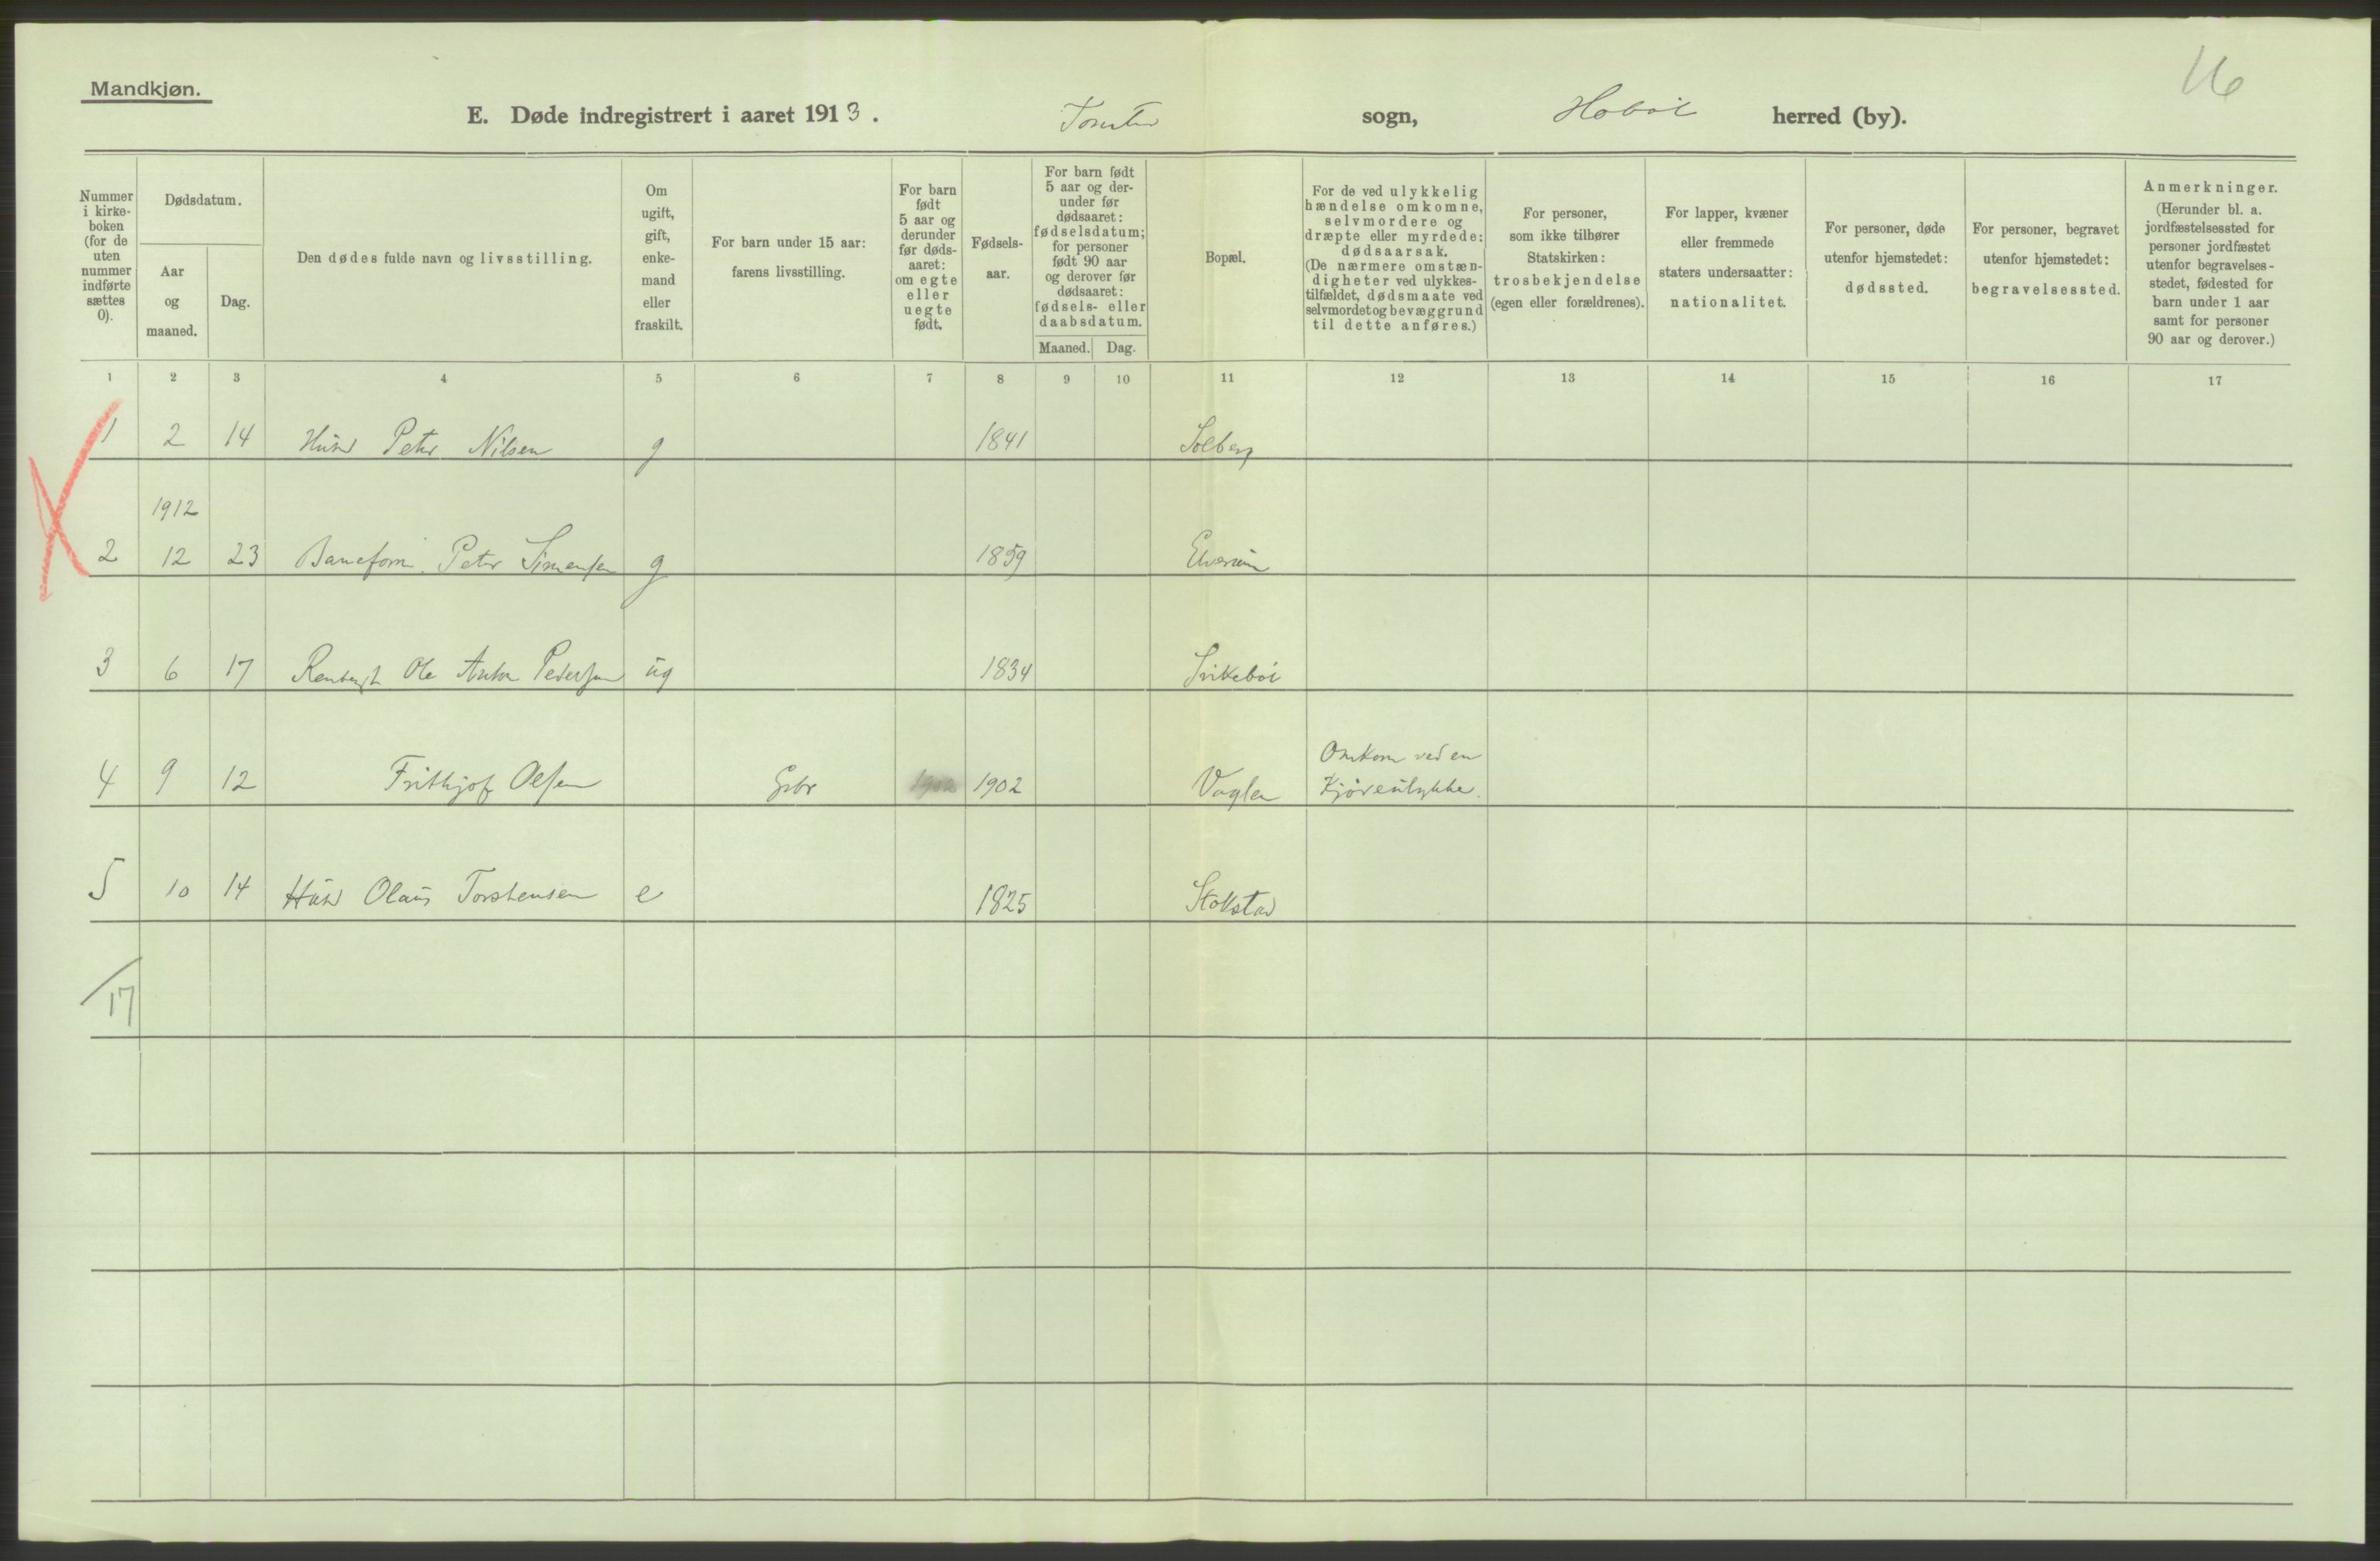 Mandkjøn.
16
E. Døde indregistrert i aaret 1913. Tomter sogn, Hobøl herred (by).
Nummer i kirke- boken (for de uten nummer indførte sættes 0).
Dødsdatum.
Aar og maaned.
Dag.
Den dødes fulde navn og livsstilling.
Om ugift, gift, enke- mand eller fraskilt.
For barn under 15 aar: farens livsstilling.
For barn født 5 aar og derunder før døds- aaret: om egte eller uegte født.
Fødsels- aar.
For barn født 5 aar og der- under før dødsaaret: fødselsdatum; for personer født 90 aar og derover før dødsaaret: fødsels- eller daabsdatum.
Maaned. Dag.
Bopæl.
For de ved ulykkelig hændelse omkomne, selvmordere og dræpte eller myrdede: dødsaarsak. (De nærmere omstæn- digheter ved ulykkes- tilfældet, dødsmaate ved selvmordet og bevæggrund til dette anføres.)
For personer, som ikke tilhører Statskirken: trosbekjendelse (egen eller forældrenes).
For lapper, kvæner eller fremmede staters undersaatter: nationalitet.
For personer, døde utenfor hjemstedet: dødssted.
For personer, begravet utenfor hjemstedet: begravelsessted.
Anmerkninger. (Herunder bl. a. jordfæstelsessted for personer jordfæstet utenfor begravelses- stedet, fødested for barn under 1 aar samt for personer 90 aar og derover.)
1 2 3 4 5 6 7 8 9 10 11 12 13 14 15 16 17
1 2 14 Husm Peter Nilsen g 1841 Solberg
1912
2 12 23 Baneform. Peter Simensen g 1859 Elverum
3 6 17 Ole Anton Pedersen ug 1834 Svikebøl
Omkom ved en
4 9 12 Frithjof Olsen Gbr 1902 1902 Vaglen Kjøreulykke.
5 10 14 Husm Olaus Torstensen e 1825 Stokstad
17